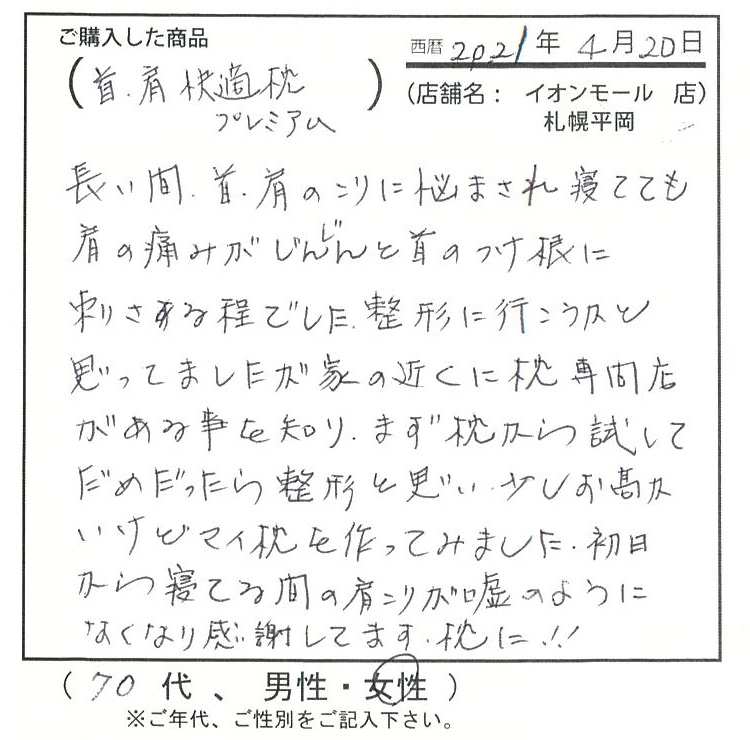 ご購入した商品
西暦 2021年 4月20日
(首・肩 快適枕
プレミアム)
(店舗名: イオンモール 店)
札幌平岡
長い間、首・肩のこりに悩まされ寝てても
肩の痛みがじんじんと首のつけ根に
刺さする程でした。整形に行こうかと
思ってましたが家の近くに枕専門店
がある事を知り、まず枕から試して
だめだったら整形と思い、少しお高か
いけどマイ枕を作ってみました。初日
から寝てる間の肩こりが嘘のように
なくなり感謝してます。枕に!!
(70代、男性・女性)
※ご年代、ご性別をご記入下さい。